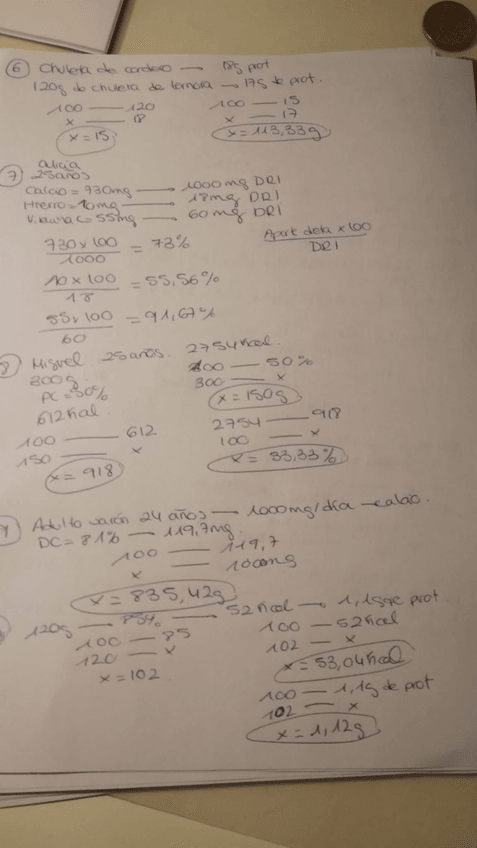 6 Chuleta de cordero → 18g prot
120g de chuleta de ternera → 17g de prot.
100 — 120
x — 18
x = 15
100 — 15
x — 17
x = 113,33g
7 Alicia
25 años
Calcio = 730mg → 1000mg DRI
Hierro = 10mg → 18mg DRI
Vitamina C = 55mg → 60mg DRI
Aport dieta x 100
DRI
730 x 100
1000
= 73%
10 x 100
18
= 55,56%
55 x 100
60
= 91,67%
8 Miguel 25 años. 2754 Kcal.
300g
PC = 50%
612 Kcal.
100 — 50%
300 — x
x = 150g
100 — 612
150 — x
x = 918
2754 — 918
100 — x
x = 33,33%
Adulto varón 24 años → 1000mg/día → calcio.
DC = 81% → 119,7mg
100 — 119,7
x — 1000mg
x = 835,42g
120g — 85% — 52 Kcal → 1,1g de prot.
100 — 85
120 — x
x = 102
100 — 52 Kcal
102 — x
x = 53,04 Kcal
100 — 1,1g de prot
102 — x
x = 1,12g